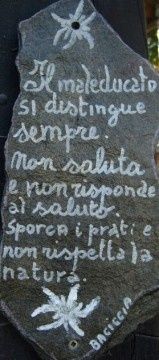 Il maleducato
si distingue
sempre.
non saluta
e non risponde
al saluto.
sporca i prati e
non rispetta la
natura.
BACICCIA